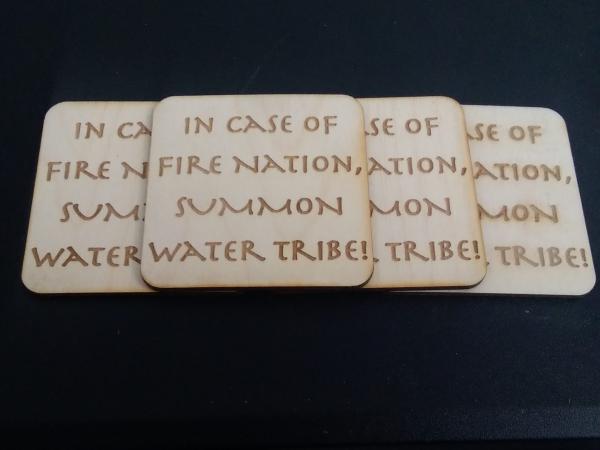 IN CA
FIRE N
SUM
WATER
IN CASE OF
FIRE NATION,
SUMMON
WATER TRIBE!
SE OF
ATION,
MON
TRIBE!
SE OF
ATION,
MON
TRIBE!